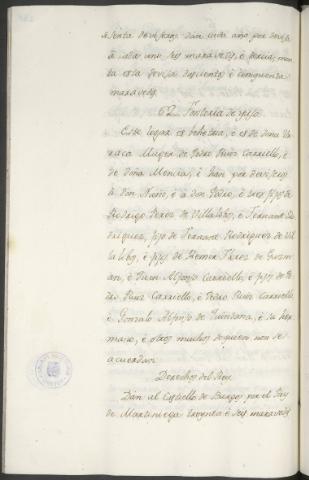 sesenta devisaros dan cada año por devisa
à cada uno seis maravedis, è tercia, mon
ta esta devisa doscientos è cinquenta
maravedis.
62 Fonteria de yuso
Este logar es behetria, è es de Doña Ur
raca Muger de Pedro Ruiz Carriello, è
de Doña Mencia, è han por deviseros
à Don Nuño, è à Don Pedro, è tres fijos de
Rodrigo Perez de Villalobos, è Fernant Ro
driguez, fijo de Fernant Rodriguez de Vi
lalobos, è fijos de Remir Florez de Guzm
an, è Juan Alfonso Carriello, è fijos de Pe
dro Ruiz Carriello, è Pedro Ruiz Carriello,
è Gonzalo Alfonso de Quintana, è su her
mano, è otros muchos de quien non se
acuerdan.
Derechos del Rey
Dan al Castiello de Burgos por el Rey
de Martiniega treynta è seis maravedis